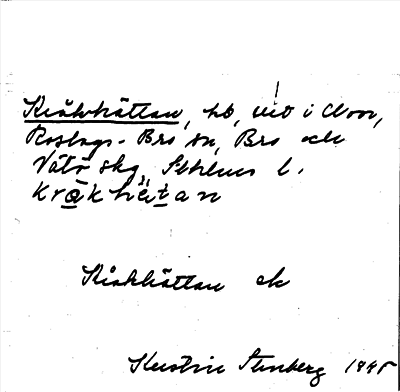 Kråkhättan, hb, vid i
Roslags-Bro sn, Bro och
Vätö skg, Sthlms l.
kråkhätan
Kråkhättan ek
Kerstin Stenberg 1945